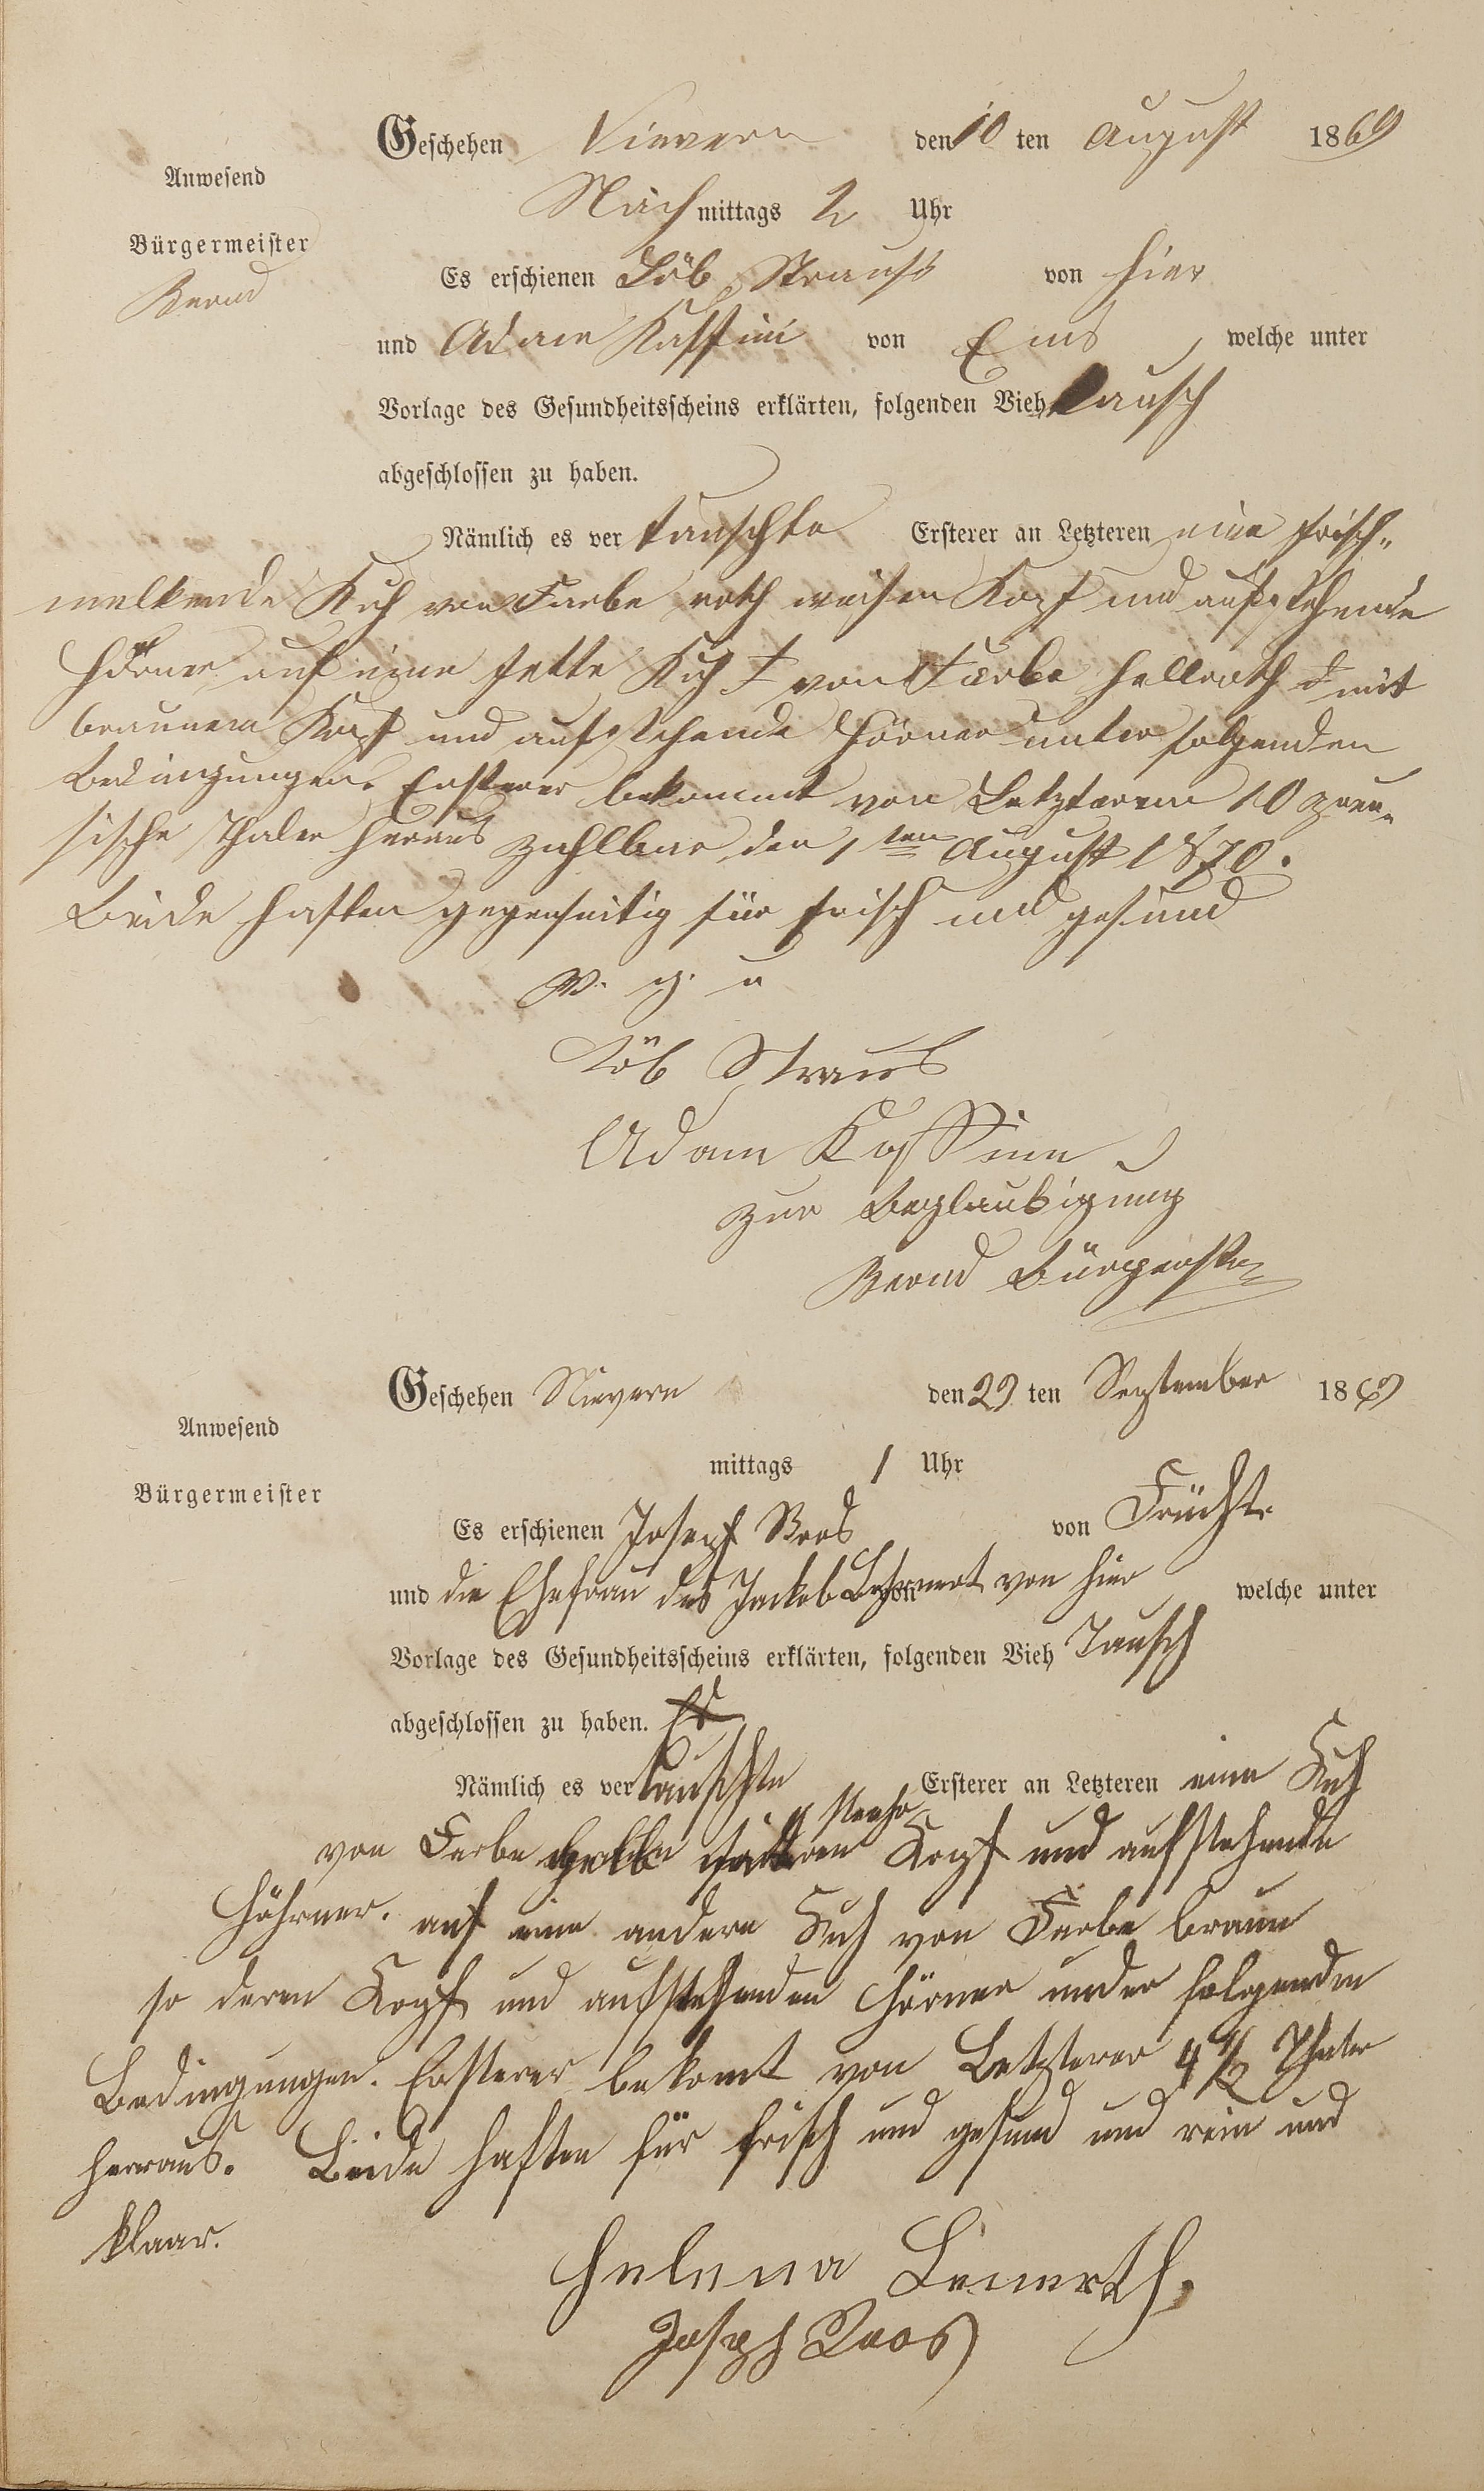 Geschehen Nievern den 10 ten August 1869
Anwesend
Nachmittags 2 Uhr
Bürgermeister
Bernd
Es erschienen Löb Strauss von hier
und Adam von Ems, welche unter
Vorlage des Gesundheitsscheins erklärten, folgenden Viehtausch
abgeschlossen zu haben.
Nämlich es vertauschte Ersterer an Letzteren eine frisch-
melkende Kuh von Farbe roth weisen Kopf und aufstehende
Hörner auf eine fette Kuh von Farbe hellroth mit
braunem Kopf und aufstehende Hörner unter folgenden
Bedingungen. Ersterer bekommt von Letzterem 10 preu-
sische Thaler heraus zahlbar den 1ten August 1870.
Beide haften gegenseitig für frisch und gesund
v. g. u
Löb Straus
Adam
zur Beglaubigung
Bernd
Geschehen Nievern den 29 ten September 1869
Anwesend
mittags 1 Uhr
Bürgermeister
Es erschienen Joseph Roos von Frücht.
und die Ehefrau des Jackob von hier, welche unter
Vorlage des Gesundheitsscheins erklärten, folgenden Vieh Tausch
abgeschlossen zu haben.
Nämlich es vertauschte Ersterer an Letzteren eine Kuh
von Farbe Kopf und aufstehende
Höhrner. auf eine andere Kuh von Farbe braun
so deren Kopf und aufstehenden Hörner under folgenden
Bedingungen. Ersterer bekomt von Letzterer 4 1/2 Thaler
herraus. Beide haften für frisch und gesund und rein und
klaar.
Helena Leinerth,
Joseph Roos